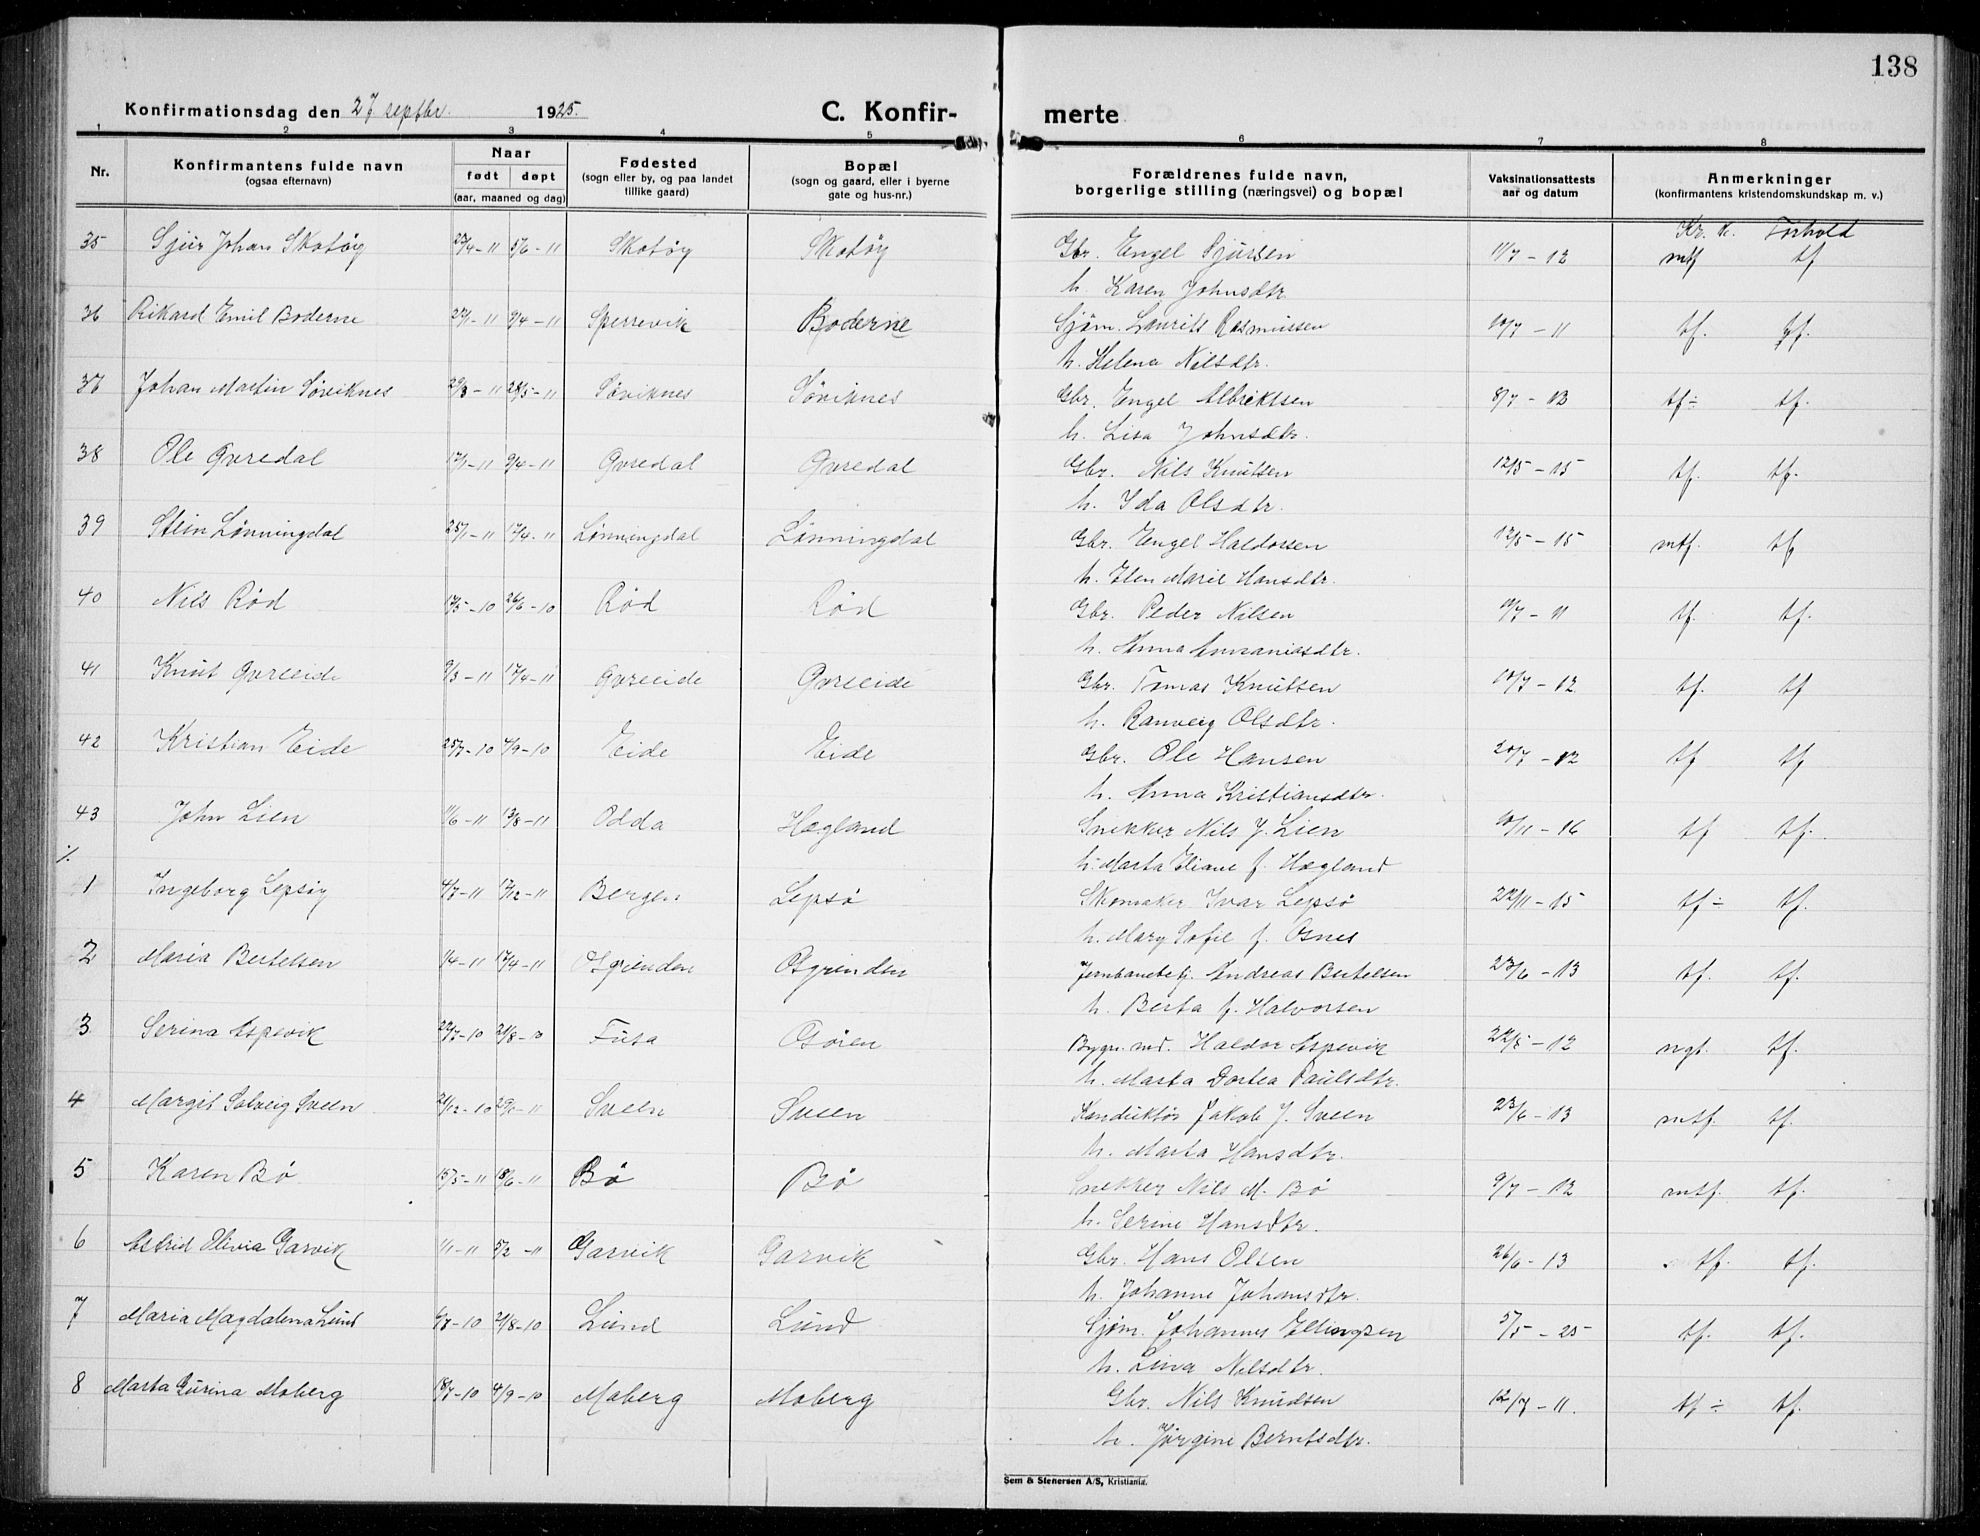 138
Konfirmationsdag den 27 septbr. 1925. C. Konfir- merte
1 2 3 4 5 6 7 8
Nr. Konfirmantens fulde navn (ogsaa efternavn) Naar født døpt (aar, maaned og dag) Fødested (sogn eller by, og paa landet tillike gaard) Bopæl (sogn og gaard, eller i byerne gate og hus-nr.) Forældrenes fulde navn, borgerlige stilling (næringsvei) og bopæl Vaksinationsattests aar og datum Anmerkninger (konfirmantens kristendomskundskap m. v.)
Kr. k. Forhold
35 Sjur Johan Skotøy 27/4-11 5/6-11 Skotøy Skotøy Gbr. Engel Sjursen 11/7-12 mtf tf
h. Karen Johnsdtr.
36 Rikard Emil Boderne 9/4-11 Sperrevik Boderne Sjøm. Laurits Rasmussen 10/7-11 tf. gf.
h. Helena Nilsdtr.
37 Johan Martin Søviknes 29/3-11 28/5-11 Søviknes Søviknes Gbr. Engel Albriktsen 8/7-13 tf÷ tf.
h. Lisa Johnsdtr.
38 Ole Øvredal 17/1-11 9/4-11 Øvredal Øvredal Gbr. Nils Knutsen 12/5-15 tf. tf.
h. Ida Olsdtr.
39 Stein Lønningdal 25/1-11 17/4-11 Lønningdal Lønningdal Gbr. Engel Haldorsen 12/5-15 mtf. tf
h. Elen Marie Hansdtr.
40 Nils Rød 17/5-10 26/6-10 Rød Rød Gbr. Peder Nilsen 10/7-11 tf. tf.
h. Anna Annaniasdtr.
41 Knut Øvreeide 9/3-11 17/4-11 Øvreeide Øvreeide Gbr. Tomas Knutsen 10/7-12 tf. tf
h. Ranveig Olsdtr.
42 Kristian Eide 25/7-10 4/9-10 Eide Eide Gbr. Ole Hansen 20/7-12 tf tf
h. Anna Kristiansdtr.
43 John Lien 1/6-11 13/8-11 Odda Hægland Snekker Nils J. Lien 10/11-16 tf tf.
h. Marta Eliane f. Hægland
1 Ingeborg Lepsøy 4/7-11 17/12-11 Bergen Lepsø Skomaker Ivar Lepsø 22/11-15 tf÷ tf.
h. Mary Sofie f. Osnes
2 Maria Bertelsen 1/4-11 17/4-11 Osgrinden Osgrinden Jernbanebetj. Andreas Bertelsen 23/6-13 tf. tf.
h. Berta f. Halvorsen
3 Serina Espevik 22/7-10 21/8-10 Fusa Osøren Bygn. md. Haldor Espevik 22/8-12 ngt. tf.
h. Marta Dortea Paulsdtr.
4 Margit Solveig Sveen 21/12-10 29/1-11 Sveen Sveen Konduktør Jakob J. Sveen 23/6-13 mtf. tf.
h. Marta Hansdtr.
5 Karen Bø 15/5-11 18/6-11 Bø Bø Snekker Nils M. Bø 9/7-12 mtf. tf.
h. Serine Hansdtr.
6 Astrid Olivia Garvik 1/1-11 5/2-11 Garvik Garvik Gbr. Hans Olsen 26/6-13 tf. tf.
h. Johanne Johansdtr.
7 Maria Magdalena Lund 6/7-10 21/8-10 Lund Lund Sjøm. Johannes Ellingsen 5/5-25 tf. tf.
h. Lina Nilsdtr.
8 Marta Gurina Moberg 18/7-10 4/9-10 Moberg Moberg Gbr. Nils Knudsen 12/7-11. tf÷ tf.
h. Jørgine Berntsdtr.
Sem & Stenersen A/S, Kristiania.